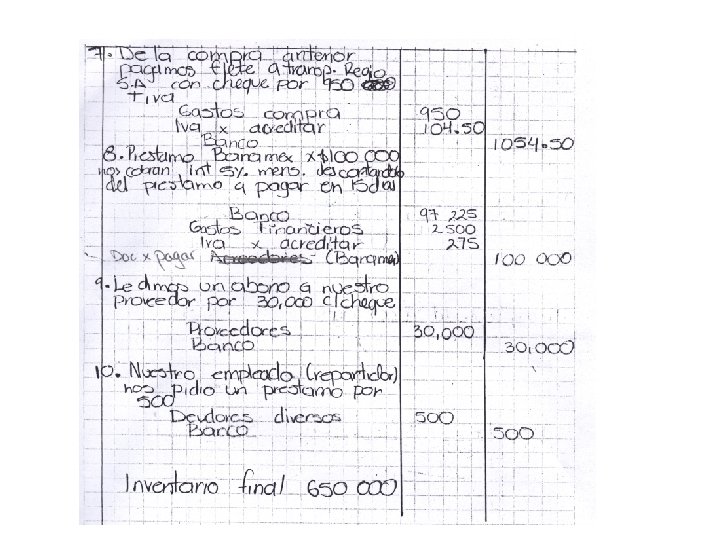 7. De la compra anterior
pagamos flete a transp. Regio
S.A con cheque por 950
+ iva
Gastos compra 950
Iva x acreditar 104.50
Banco 1054.50
8. Prestamo Banamex x $100 000
nos cobran int 5%. mens. descontando
del prestamo a pagar en 15 dias
Banco 97 225
Gastos Financieros 2 500
Iva x acreditar 275
Doc x pagar Acreedores (Banamex) 100 000
9. Le dimos un abono a nuestro
proveedor por 30,000 c/cheque
Proveedores 30,000
Banco 30,000
10. Nuestro empleado (repartidor)
nos pidio un prestamo por
500
Deudores diversos 500
Banco 500
Inventario final 650 000